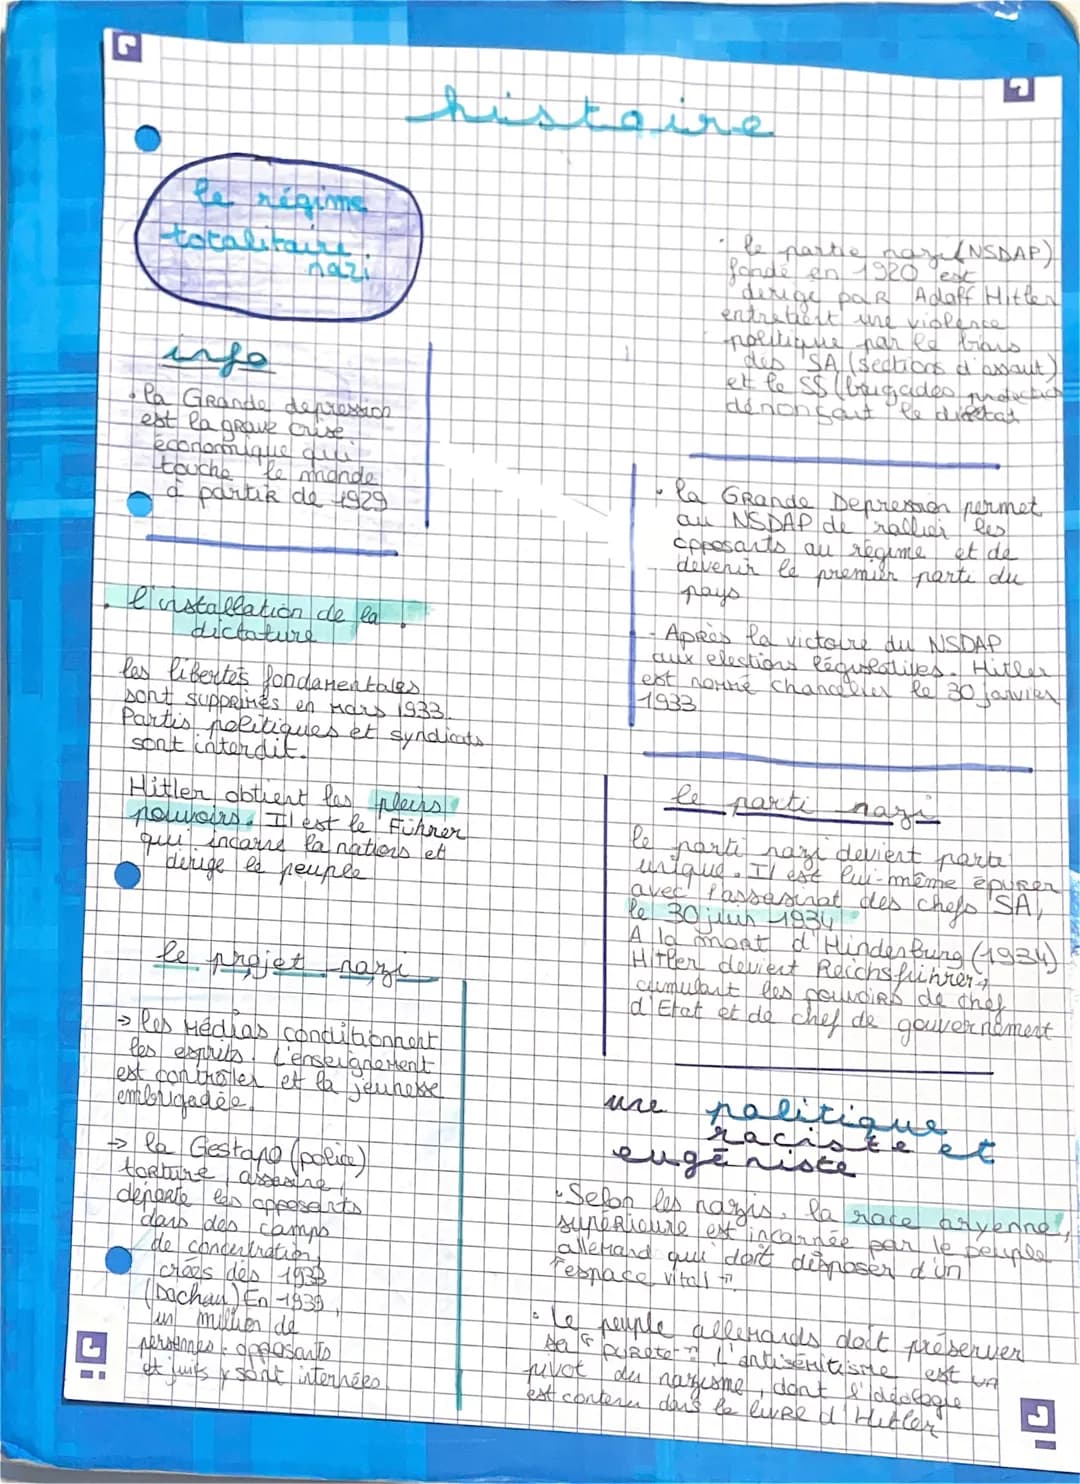 histoire
le régime
totalitaire
nazi
info
• la GRande depression
est la grave crise
économique qui
touche le monde
à partir de 1929
• le partie nazi (NSDAP)
fondé en 1920 est
dirigé paR Adolf Hitler
entretient une violence
politique par le biais
des SA (sections d'assaut)
et le SS (brigades protection
dénonçant le diktat
• la GRande Depression permet
au NSDAP de rallier les
opposants au régime et de
devenir le premier parti du
pays
- Après la victoire du NSDAP
aux elections législatives. Hitler
est nommé chancelier le 30 janvier
1933
l'installation de la
dictature
les libertés fondamentales
sont supprimés en mars 1933.
Partis politiques et syndicats
sont interdit.
Hitler obtient les pleins
pouvoirs. Il est le Führer
qui incarne la nations et
dirige le peuple
le parti nazi
le parti nazi devient parti
unique. Il est lui-même épurer
avec l'assassinat des chefs SA,
le 30 juin 1934
A la mort d'Hindenburg (1934)
Hitler devient Reichsführer,
cumulant les pouvoiRs de chef
d'Etat et de chef de gouvernement
le projet nazi
→ les médias conditionnent
les esprits. L'enseignement
est contrôler et la jeunesse
embrigadée.
→ la Gestapo (police)
torture, assassine,
déporte les opposants
dans des camps
de concentration,
crées dès 1933
(Dachau) En 1939,
un million de
personnes, opposants
et juifs y sont internées
une politique
raciste et
eugéniste
• Selon les nazis, la race aryenne,
supéRieure est incarnée par le peuple
allemand qui doit disposer d'un
"espace vital"
• Le peuple allemands doit préserver
sa "pureté" L'antisémitisme est un
pivot du nazisme, dont l'idéologie
est contenu dans le livRe d'Hitler